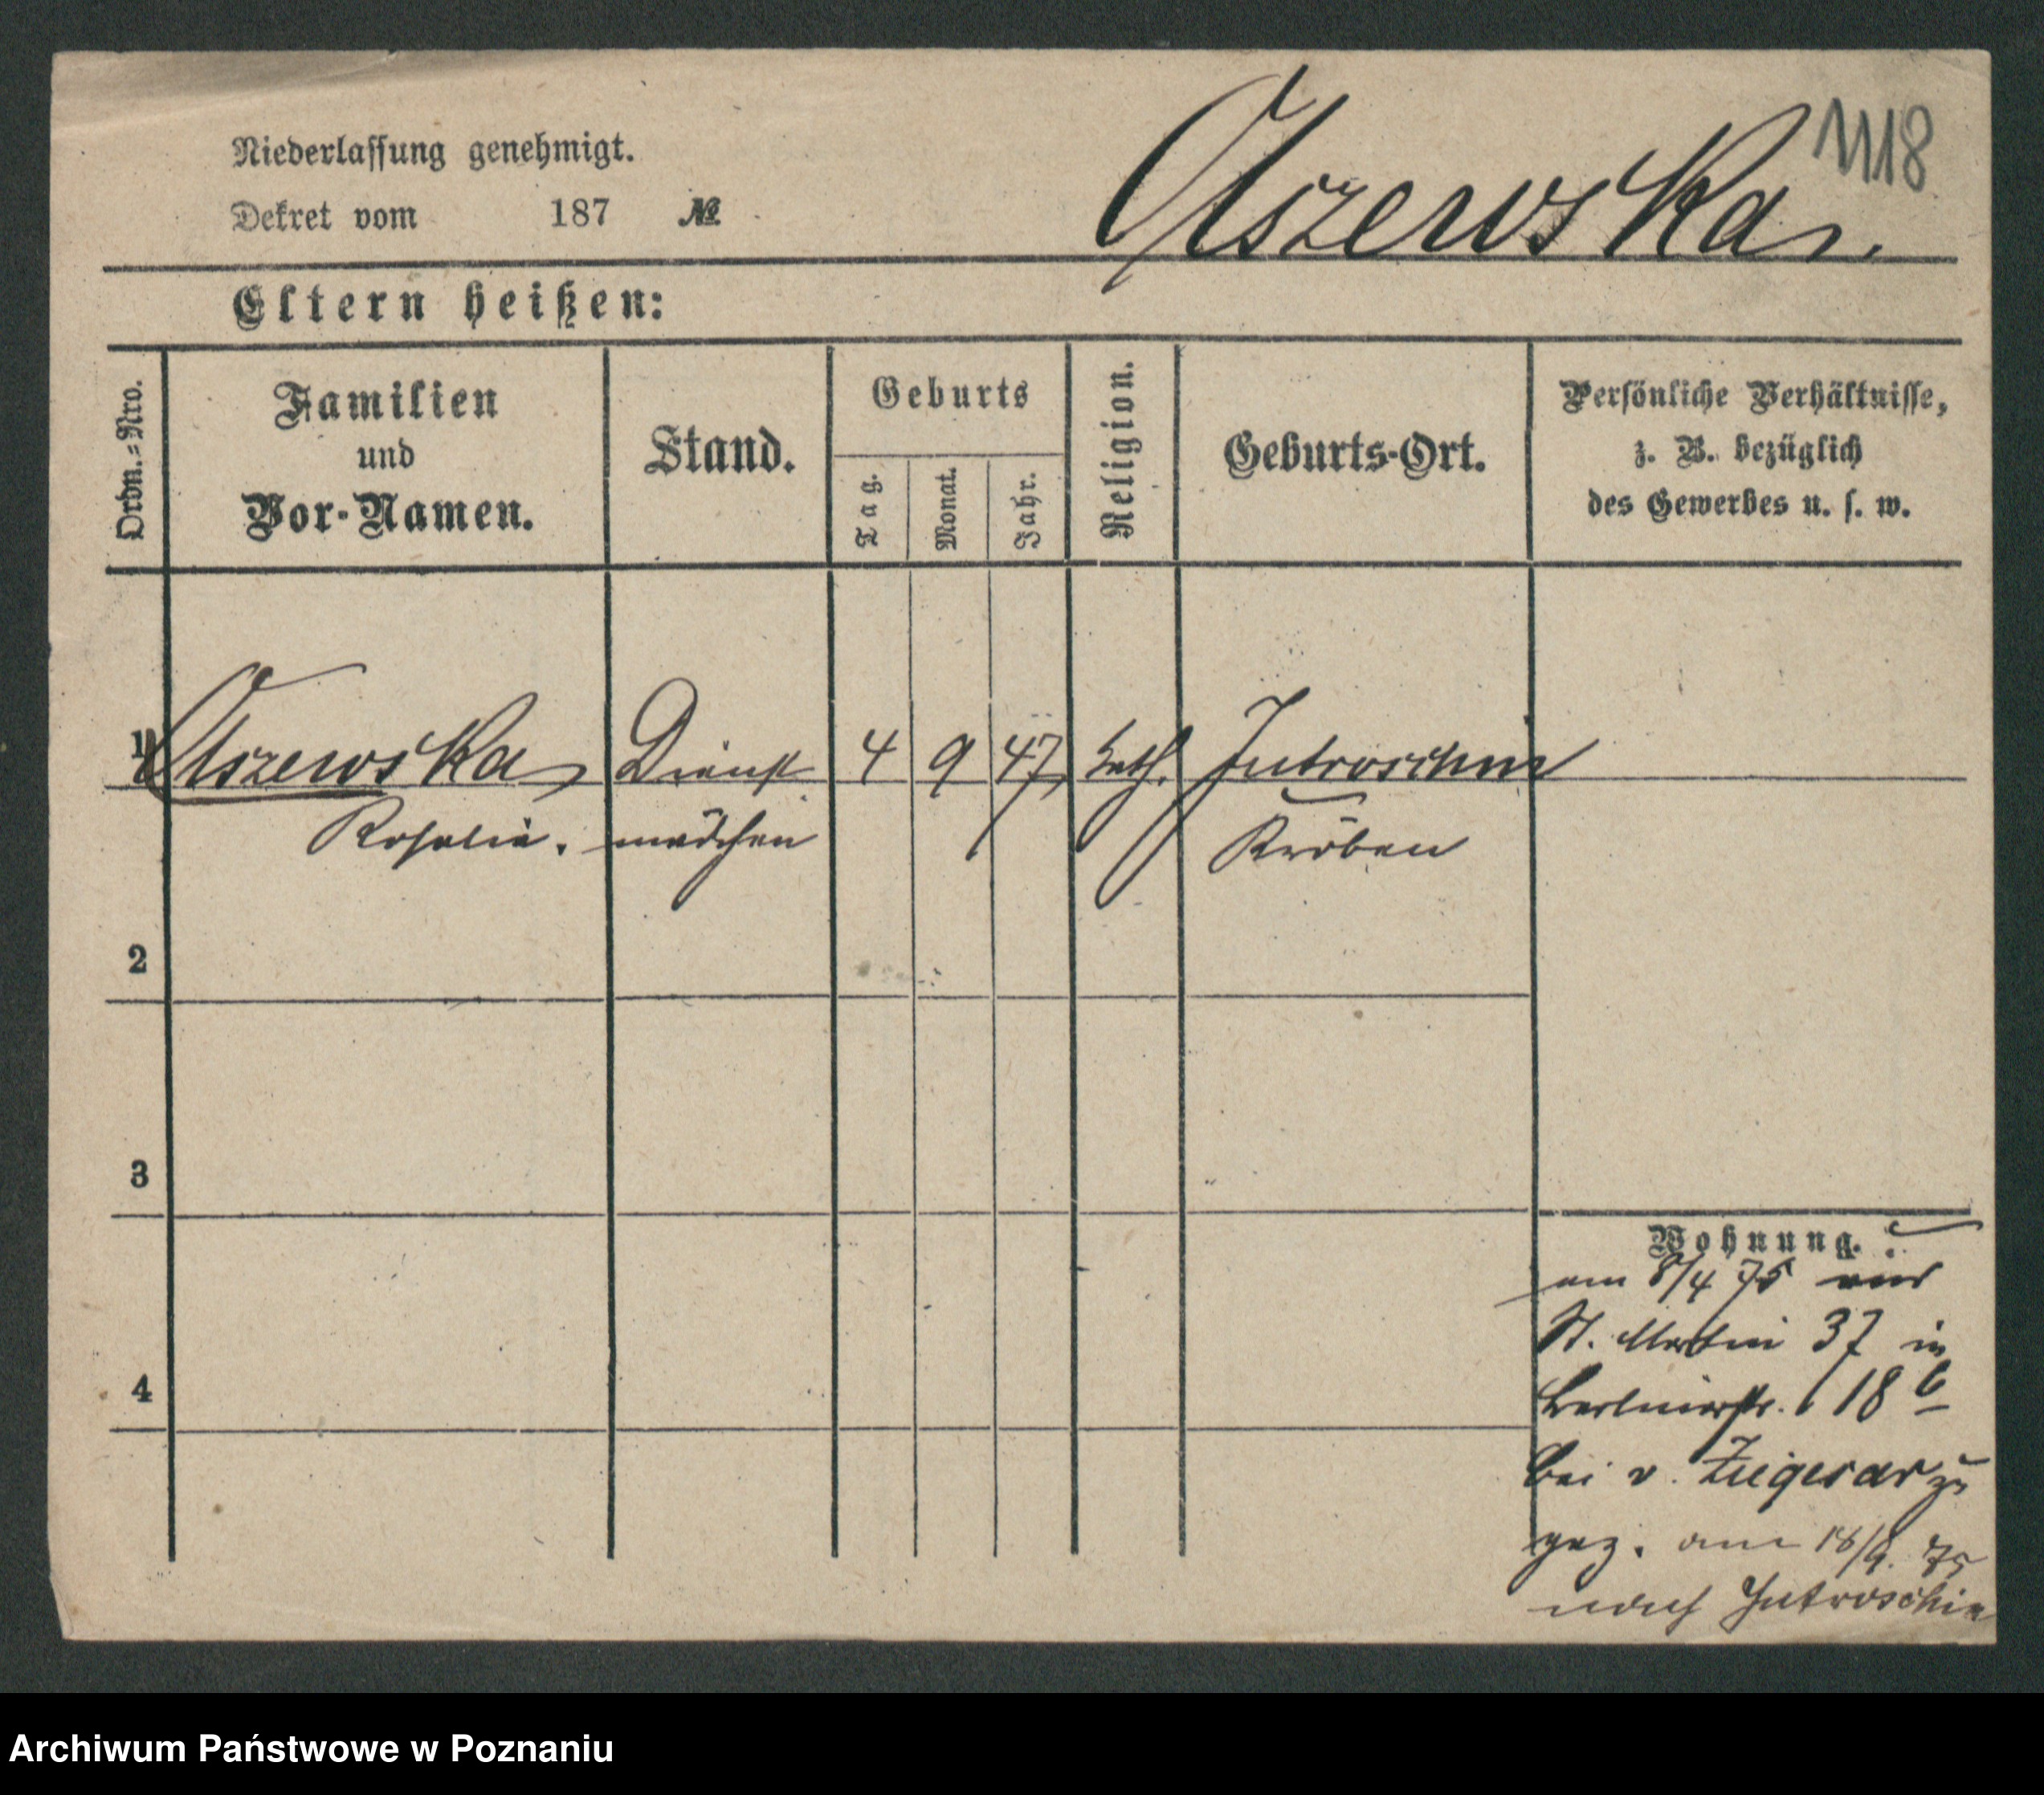 Niederlassung genehmigt.
Dekret vom 187 №
1118
Olszewska.
Eltern heißen:
Ordn.-Nro.
Familien
und
Vor-Namen.
Stand.
Geburts
Tag.
Monat.
Jahr.
Religion.
Geburts-Ort.
Persönliche Verhältnisse,
z. B. bezüglich
des Gewerbes u. s. w.
1 Olszewska Dienst 4 9 47 kath. Jutroschin
Rosalie. mädchen Kröben
2
3
4
Wohnung.
am 8/4 75 von
St. Martin 37 in
Berlinerstr. 18 b
bei v. Ziegesar zu
gez. am 18/9. 75
nach Jutroschin
Archiwum Państwowe w Poznaniu